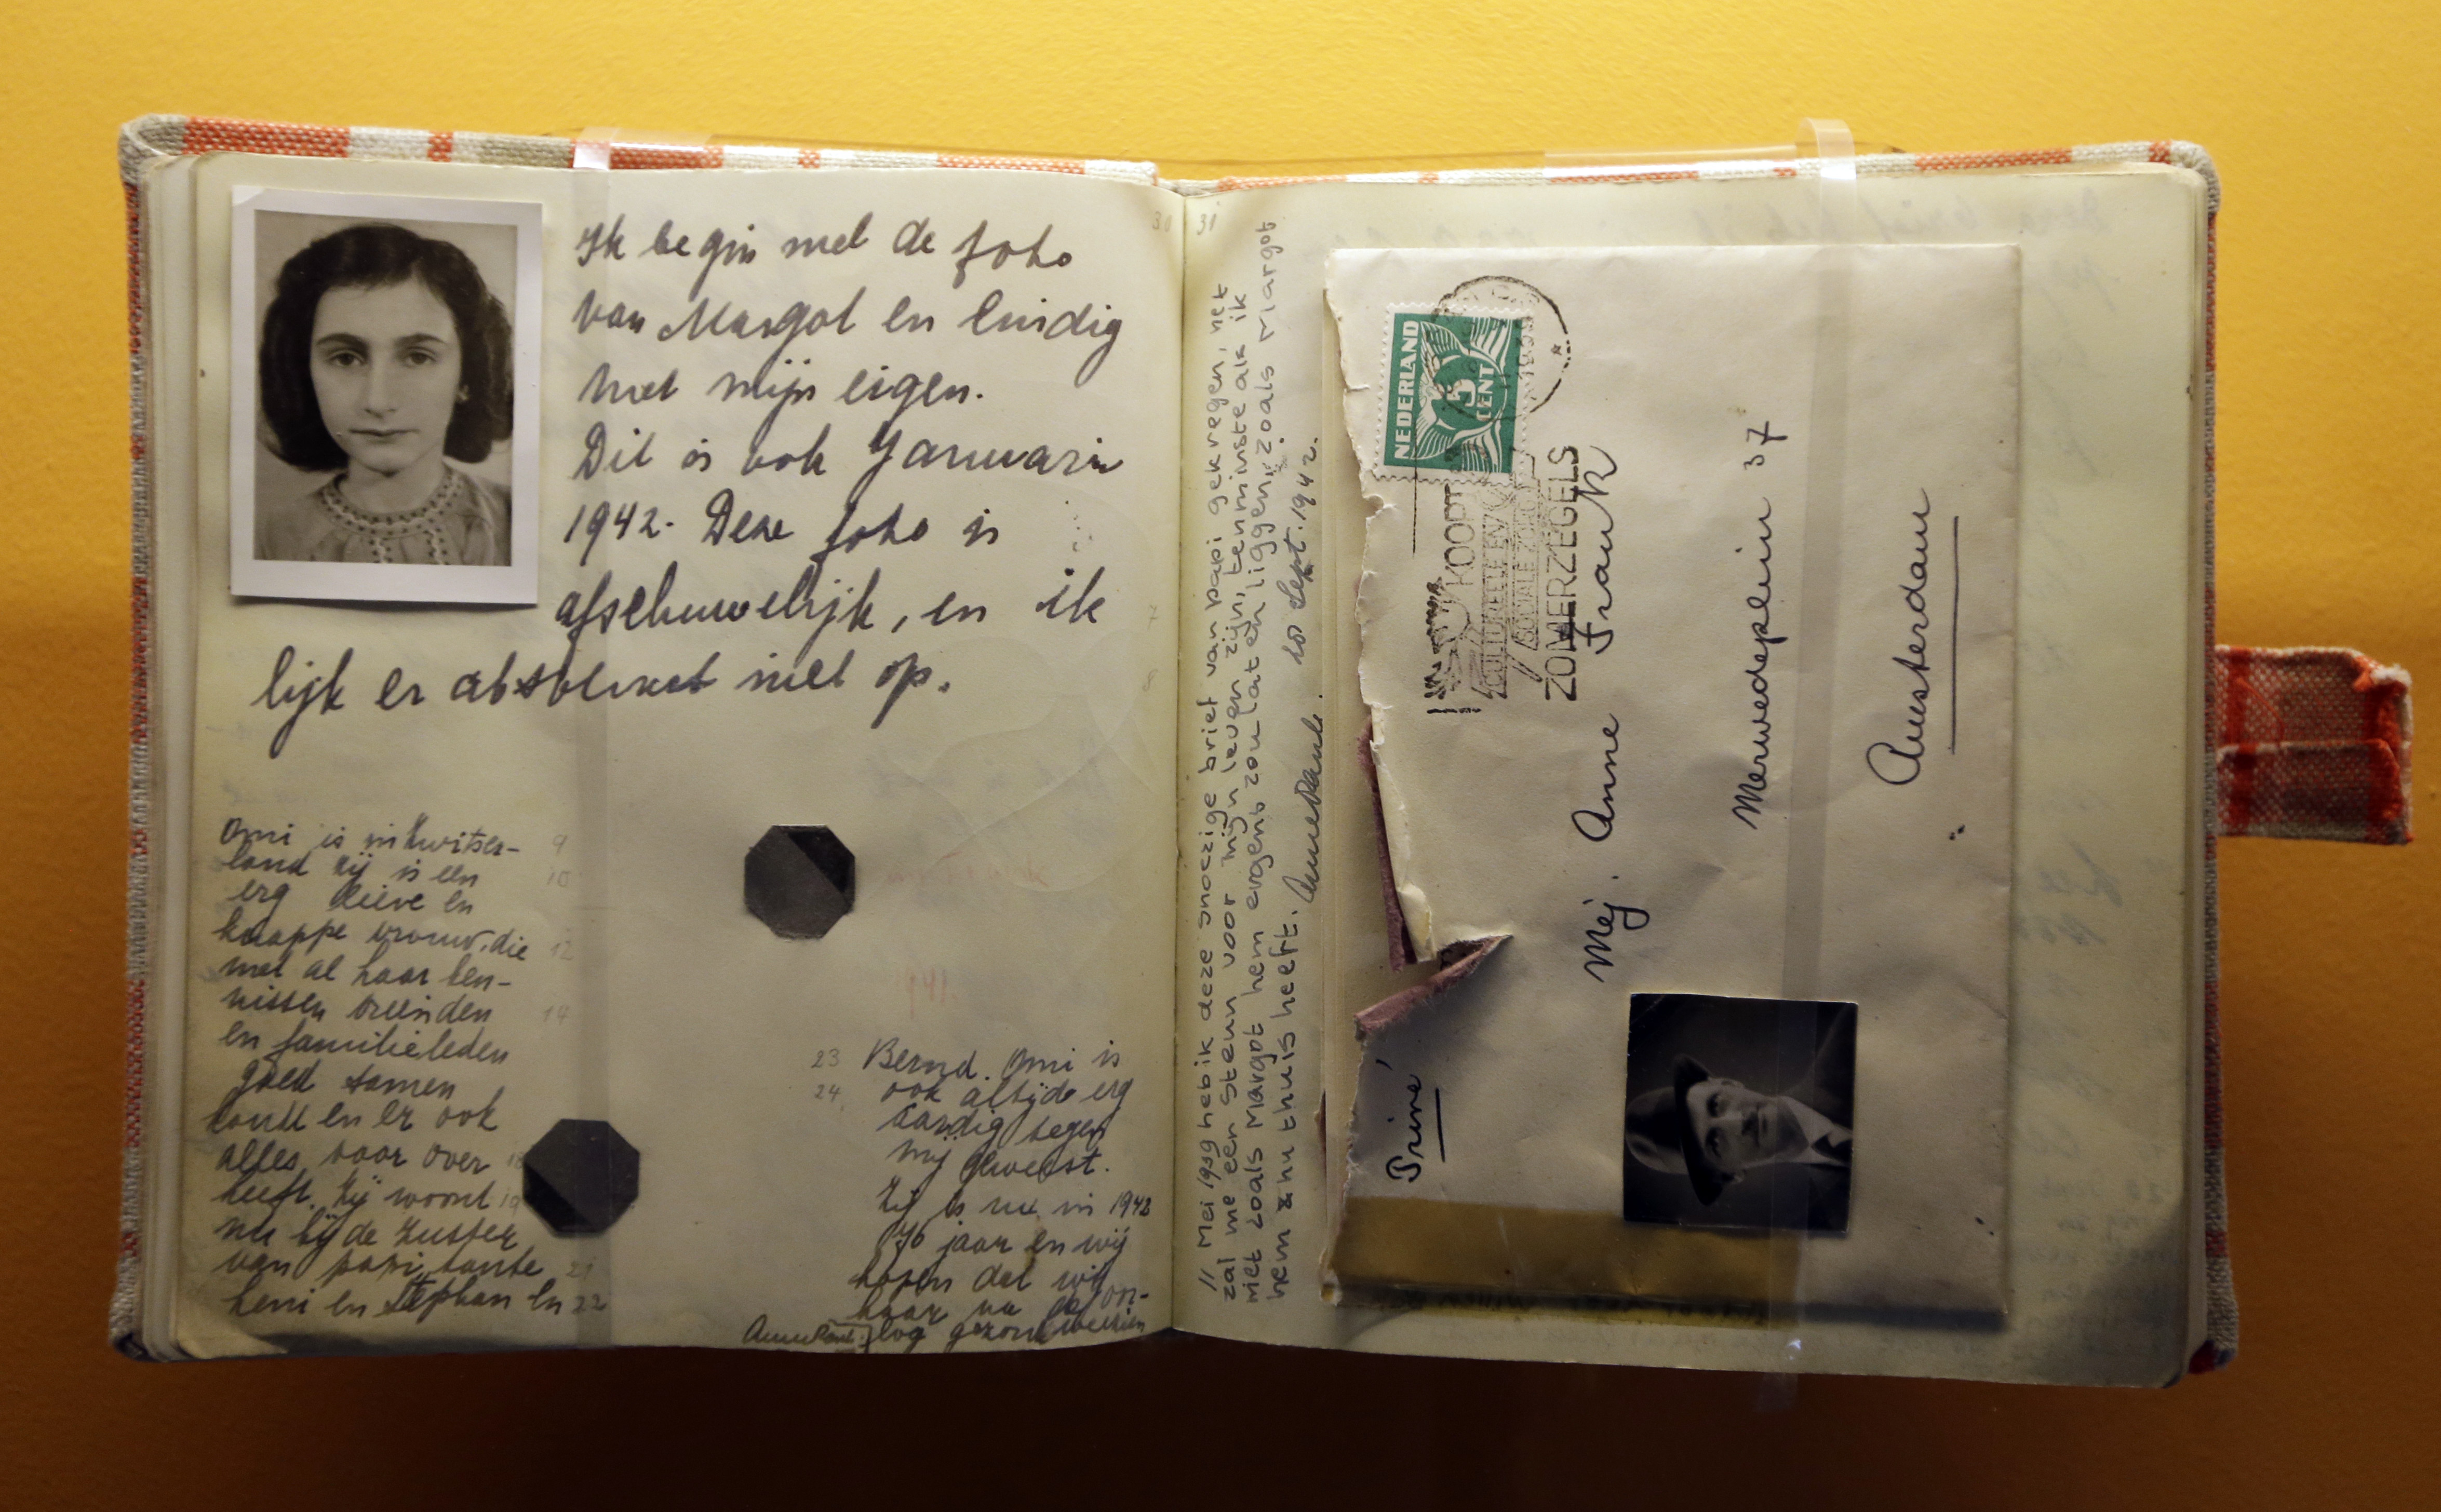 Ik begin met de foto
van Margot en eindig
met mijn eigen.
Dit is ook Januari
1942. Deze foto is
afschuwelijk, en ik
lijk er absoluut niet op.
Omi is in Zwitser-
land Zij is een
erg lieve en
knappe vrouw, die
met al haar ken-
nissen vrienden
en familieleden
goed samen
en er ook
alles voor over
heeft. Zij woont
nu bij de zuster
van papi, tante
Leni en Stephan en
Bernd. Omi is
ook altijd erg
aardig tegen
mij geweest.
Zij is nu in 1942
76 jaar en wij
hopen dat wij
haar na de oor-
log gezond weerzien
9
10
12
14
19
21
22
23
24
30
31
11 Mei 1939 heb ik deze snoezige brief van papi gekregen, het
zal me een steun voor mijn leven zijn, tenminste als ik
niet zoals Margot hem ergens zou laten liggen, zoals Margot
hem nu thuis heeft. 28 Sept. 1942.
NEDERLAND
3
CENT
KOOPT
CULTUREELE EN
SOCIALE ZORG
ZOMERZEGELS
Mej. Anne Frank
Merwedeplein 37
Amsterdam
Privé